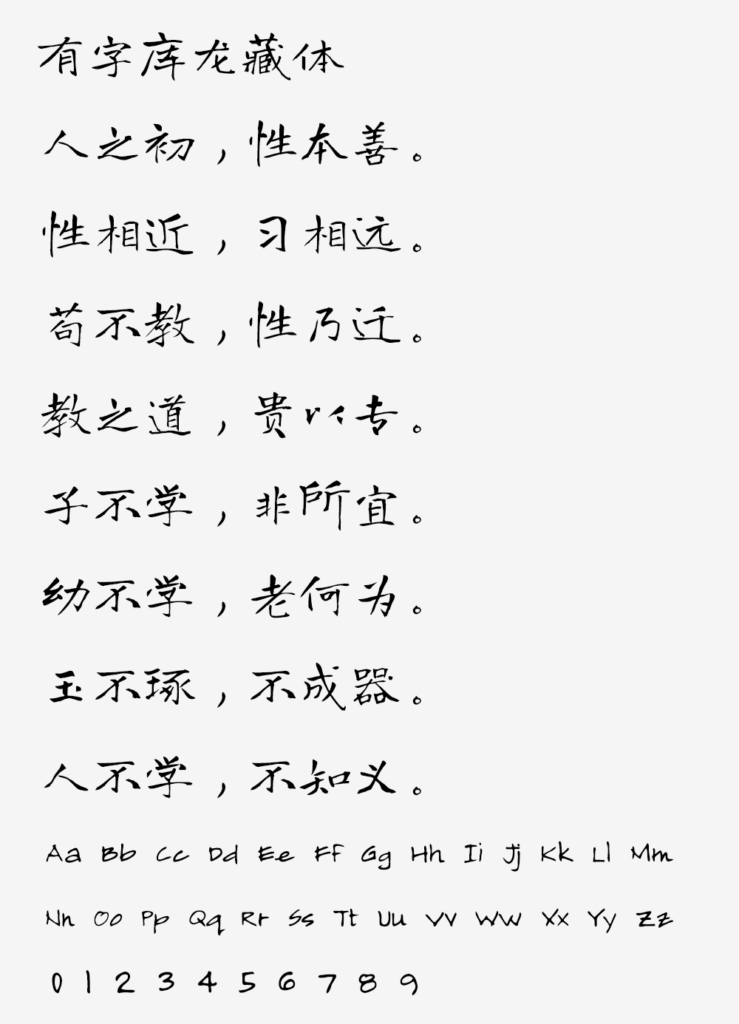 有字库龙藏体
人之初，性本善。
性相近，习相远。
苟不教，性乃迁。
教之道，贵以专。
子不学，非所宜。
幼不学，老何为。
玉不琢，不成器。
人不学，不知义。
Aa Bb Cc Dd Ee Ff Gg Hh Ii Jj Kk Ll Mm
Nn Oo Pp Qq Rr Ss Tt Uu Vv Ww Xx Yy Zz
0 1 2 3 4 5 6 7 8 9